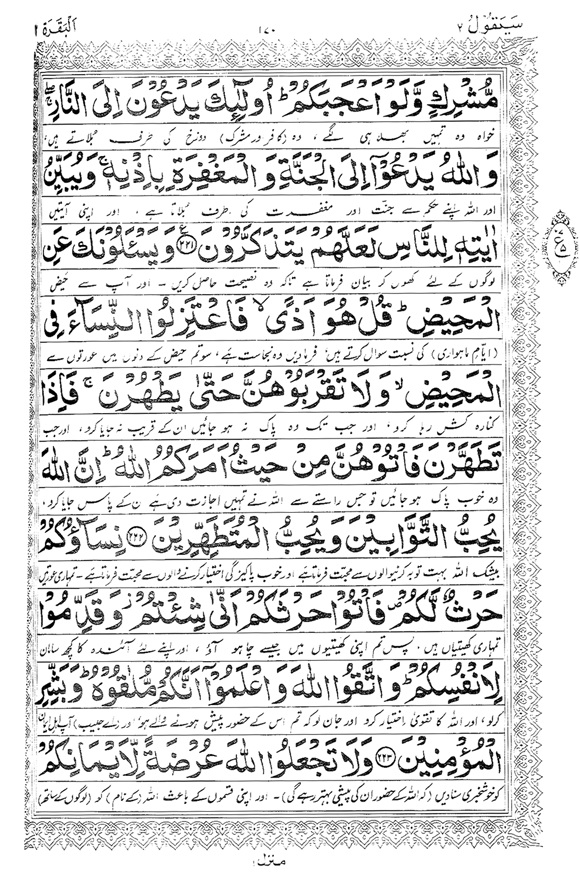 سَيَقُوْلُ ٢ ١٧٠ اَلْبَقَرَة ٢
مُّشْرِكٍ وَّلَوْ اَعْجَبَكُمْ ؕ اُولٰٓئِكَ يَدْعُوْنَ اِلَى النَّارِ ۖۚ
خواہ وہ تمہیں بھلا ہی لگے، وہ (کافر اور مشرک) دوزخ کی طرف بلاتے ہیں،
وَاللّٰهُ يَدْعُوْٓا اِلَى الْجَنَّةِ وَالْمَغْفِرَةِ بِاِذْنِهٖ ۚ وَيُبَيِّنُ
اور اللہ اپنے حکم سے جنت اور مغفرت کی طرف بلاتا ہے، اور اپنی آیتیں
اٰيٰتِهٖ لِلنَّاسِ لَعَلَّهُمْ يَتَذَكَّرُوْنَ ﴿۲۲۱﴾ وَيَسْـَٔلُوْنَكَ عَنِ
لوگوں کے لئے کھول کر بیان فرماتا ہے تاکہ وہ نصیحت حاصل کریں۔ اور آپ سے حیض
الْمَحِيْضِ ؕ قُلْ هُوَ اَذًى ۙ فَاعْتَزِلُوا النِّسَآءَ فِى
(ایام ماہواری) کی نسبت سوال کرتے ہیں، فرما دیں وہ نجاست ہے، سو تم حیض کے دنوں میں عورتوں سے
الْمَحِيْضِ ۙ وَلَا تَقْرَبُوْهُنَّ حَتّٰى يَطْهُرْنَ ۚ فَاِذَا
کنارہ کش رہا کرو، اور جب تک وہ پاک نہ ہو جائیں ان کے قریب نہ جایا کرو، اور جب
تَطَهَّرْنَ فَاْتُوْهُنَّ مِنْ حَيْثُ اَمَرَكُمُ اللّٰهُ ؕ اِنَّ اللّٰهَ
وہ خوب پاک ہو جائیں تو جس راستے سے اللہ نے تمہیں اجازت دی ہے ان کے پاس جایا کرو،
يُحِبُّ التَّوَّابِيْنَ وَيُحِبُّ الْمُتَطَهِّرِيْنَ ﴿۲۲۲﴾ نِسَآؤُكُمْ
بیشک اللہ بہت توبہ کرنیوالوں سے محبت فرماتا ہے اور خوب پاکیزگی اختیار کرنے والوں سے محبت فرماتا ہے۔ تمہاری عورتیں
حَرْثٌ لَّكُمْ ۪ فَاْتُوْا حَرْثَكُمْ اَنّٰى شِئْتُمْ ؗ وَقَدِّمُوْا
تمہاری کھیتیاں ہیں، پس تم اپنی کھیتیوں میں جیسے چاہو آؤ، اور اپنے لئے آئندہ کا کچھ سامان
لِاَنْفُسِكُمْ ؕ وَاتَّقُوا اللّٰهَ وَاعْلَمُوْٓا اَنَّكُمْ مُّلٰقُوْهُ ؕ وَبَشِّرِ
کرلو، اور اللہ کا تقویٰ اختیار کرو اور جان لو کہ تم اس کے حضور پیش ہونے والے ہو، اور (اے حبیب) آپ اہل ایمان
الْمُؤْمِنِيْنَ ﴿۲۲۳﴾ وَلَا تَجْعَلُوا اللّٰهَ عُرْضَةً لِّاَيْمَانِكُمْ
کو خوشخبری سنادیں (کہ اللہ کے حضور ان کی پیشی بہتر رہے گی)۔ اور اپنی قسموں کے باعث اللہ (کے نام) کو (لوگوں کے ساتھ)
منزل ۱